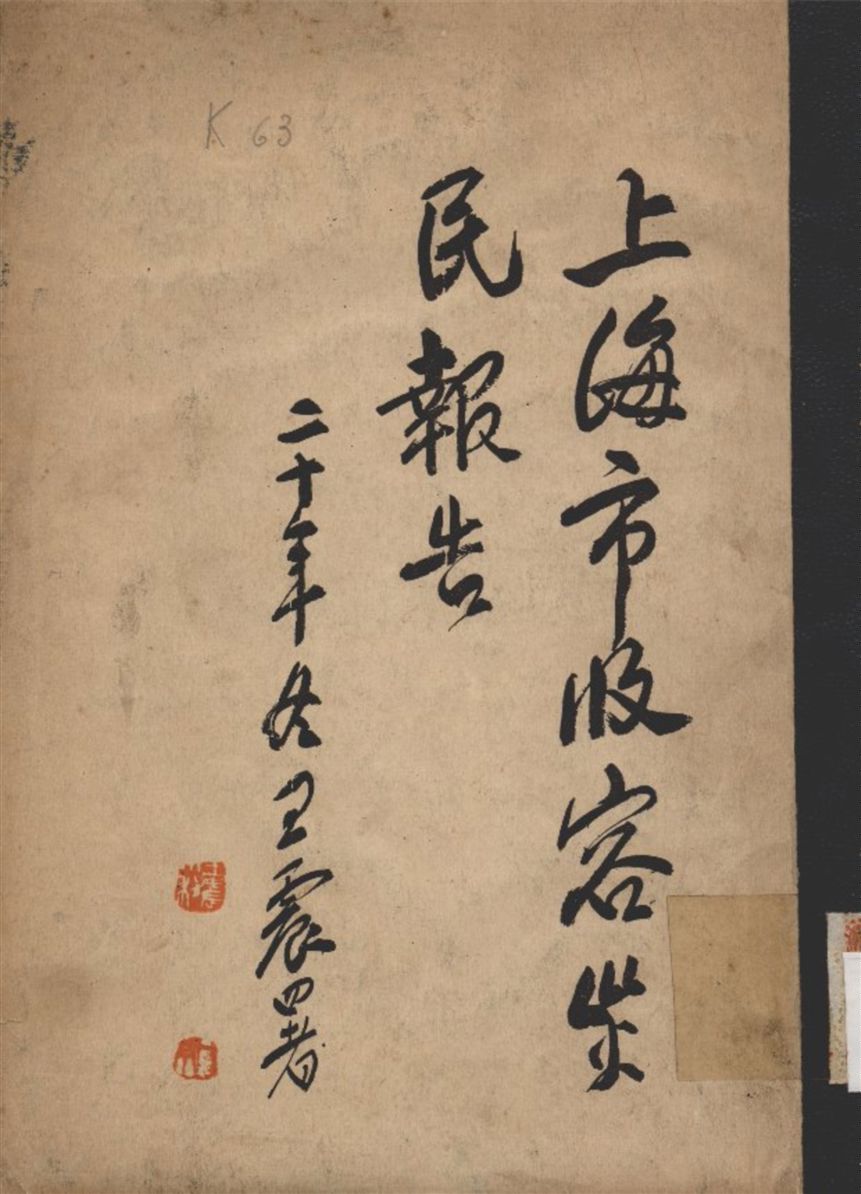 K 63
上海市收容災
民報告
二十年冬王震署